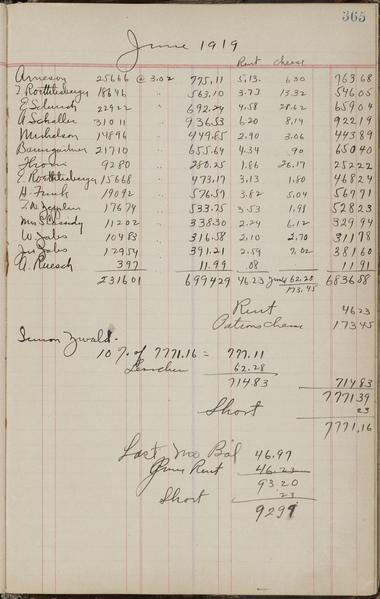 365
June 1919
Rent Cheese
Arneson 25666 @ 3.02 775.11 5.13. 6.30 763.68
F Roethlisberger 18646 " 563.10 3.73 13.32 546.05
E Schmid 22922 " 692.24 4.58 28.62 659.04
A Scheller 31011 " 936.53 6.20 8.14 922.19
Michelson 14896 " 449.85 2.90 3.06 443.89
Baumgartner 21710 " 655.64 4.34 .90 650.40
9280 " 280.25 1.86 26.17 252.22
E. Roethlisberger 15668 " 473.17 3.13 1.80 468.24
H. Frank 19092 " 576.57 3.82 5.04 567.71
17674 " 533.75 3.53 1.98 528.23
Mrs Cassidy 11202 " 338.30 2.24 6.12 329.94
W Jabs 10483 " 316.58 2.10 2.70 311.78
Jabs 12954 " 391.21 2.59 7.02 381.60
A. Ruesch 397 11.99 .08 11.91
231601 6994.29 46.23 62.28 6836.88
173.45
Rent 46.23
Patrons Cheese 173.45
Simon Zwald.
10 % of 7771.16 = 777.11
62.28
714.83 714.83
7771.39
Short 23
7771.16
Last Mo Bal 46.97
June Rent 46.23
93.20
Short .23
92.97